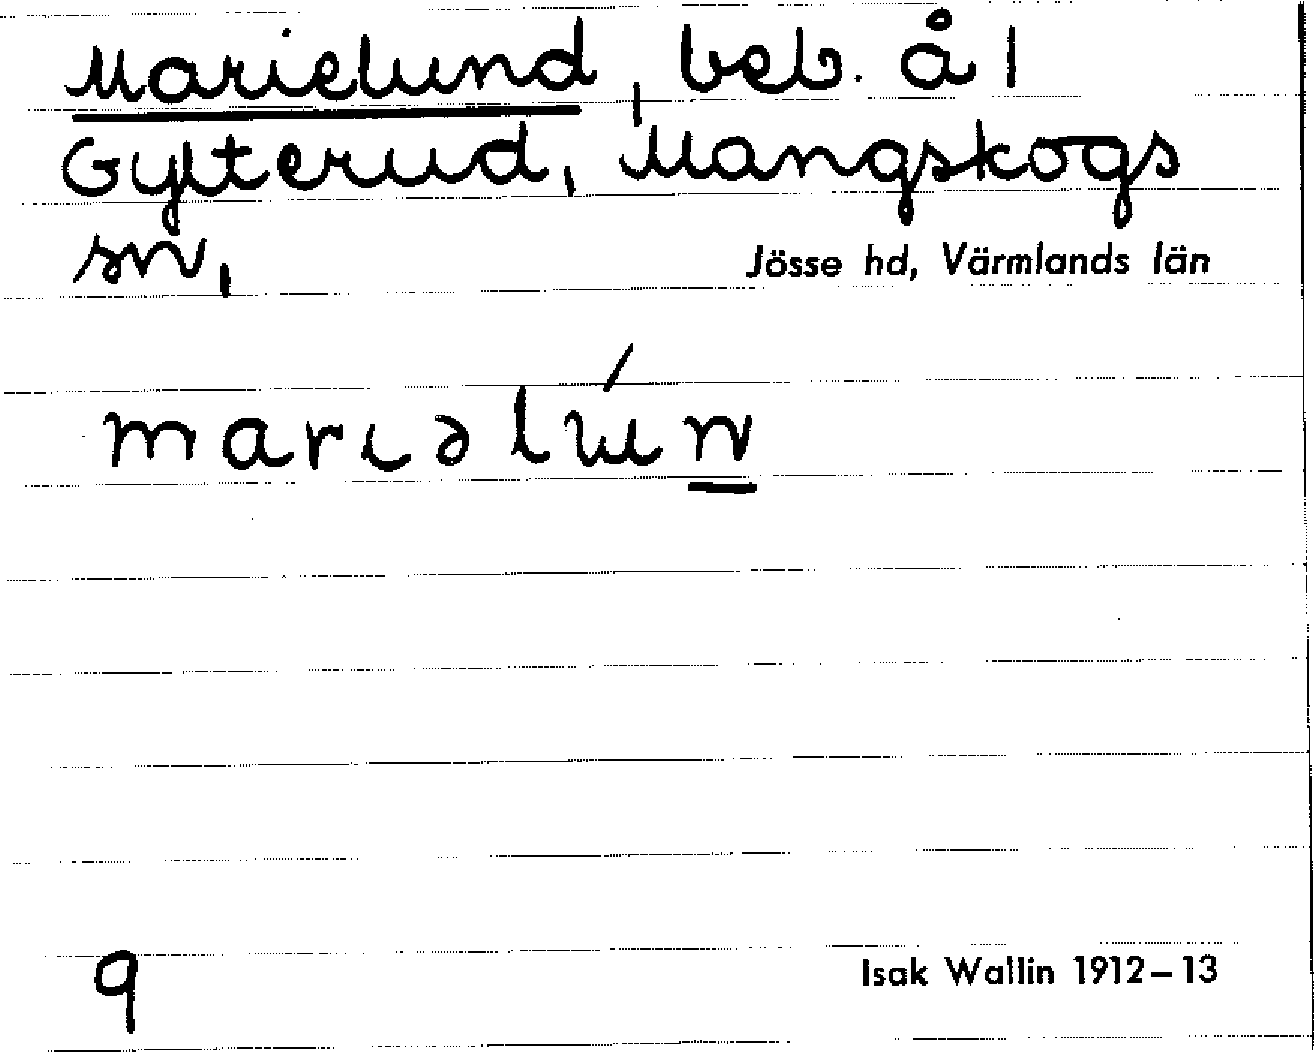 Marielund, beb. å 1
Gylterud, Mangskogs
sn,
Jösse hd, Värmlands län
mariəlún
9
Isak Wallin 1912–13